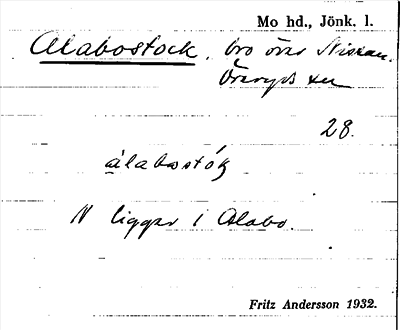 Mo hd., Jönk. l.
Alabostock, bro över Nissan.
Öreryds sn
28.
álabostók
N ligger i Alabo.
Fritz Andersson 1932.